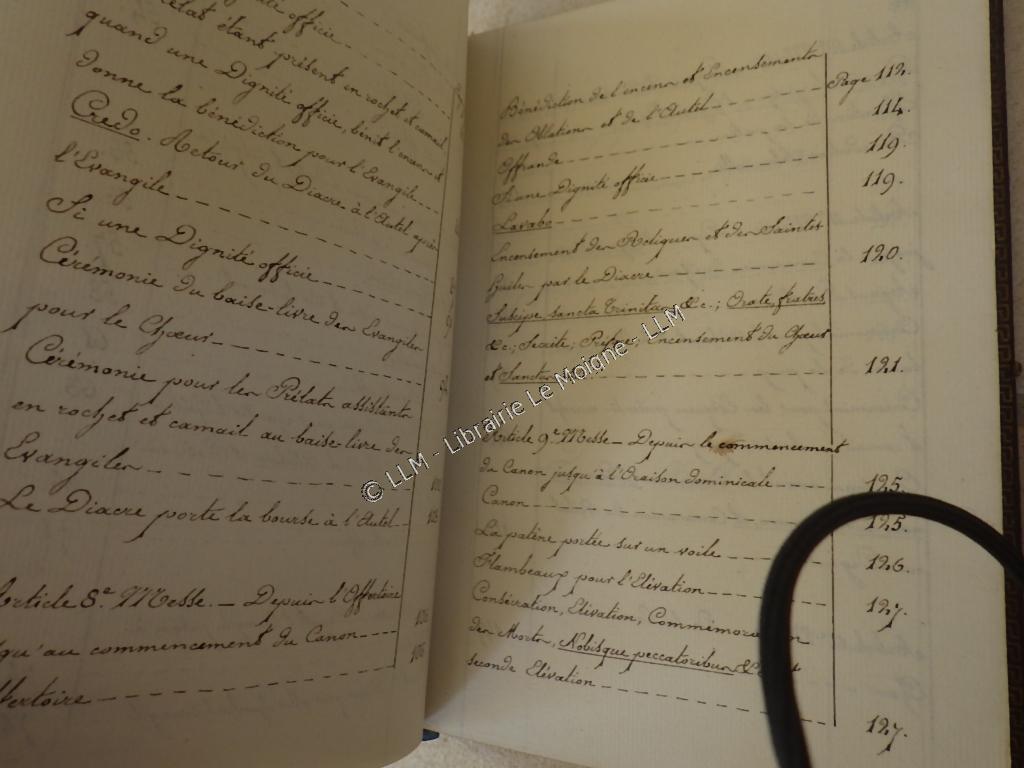 officie
étant présent en rochet et camail
quand une Dignité officie, bénit l'encens et
donne la bénédiction pour l'Evangile
Credo. Retour du Diacre à l'Autel après
l'Evangile
Si une Dignité officie
Cérémonie du baise-livre des Evangiles
pour le Chœur
Cérémonie pour les Prélats assistants
en rochet et camail au baise-livre des
Evangiles
Le Diacre porte la bourse à l'Autel
Article 8e Messe. — Depuis l'Offertoire
qu'au commencement du Canon
106
Bénédiction de l'encens et Encensements
des Oblations et de l'Autel Page 112.
Offrande 114.
Si une Dignité officie 119.
Lavabo 119.
Encensement des Reliques et des Saintes
Huiles par le Diacre 120.
Suscipe sancta Trinitas &c.; Orate fratres
&c.; Secrète; Préface; Encensement du Chœur
et Sanctus 121.
Article 9e Messe — Depuis le commencement
du Canon jusqu'à l'Oraison dominicale 125.
Canon 125.
La patène portée sur un voile 126.
Flambeaux pour l'Elévation 127.
Consécration, Elévation, Commémoration
des Morts, Nobisque peccatoribus
seconde Elévation 127.
© LLM - Librairie Le Moigne - LLM